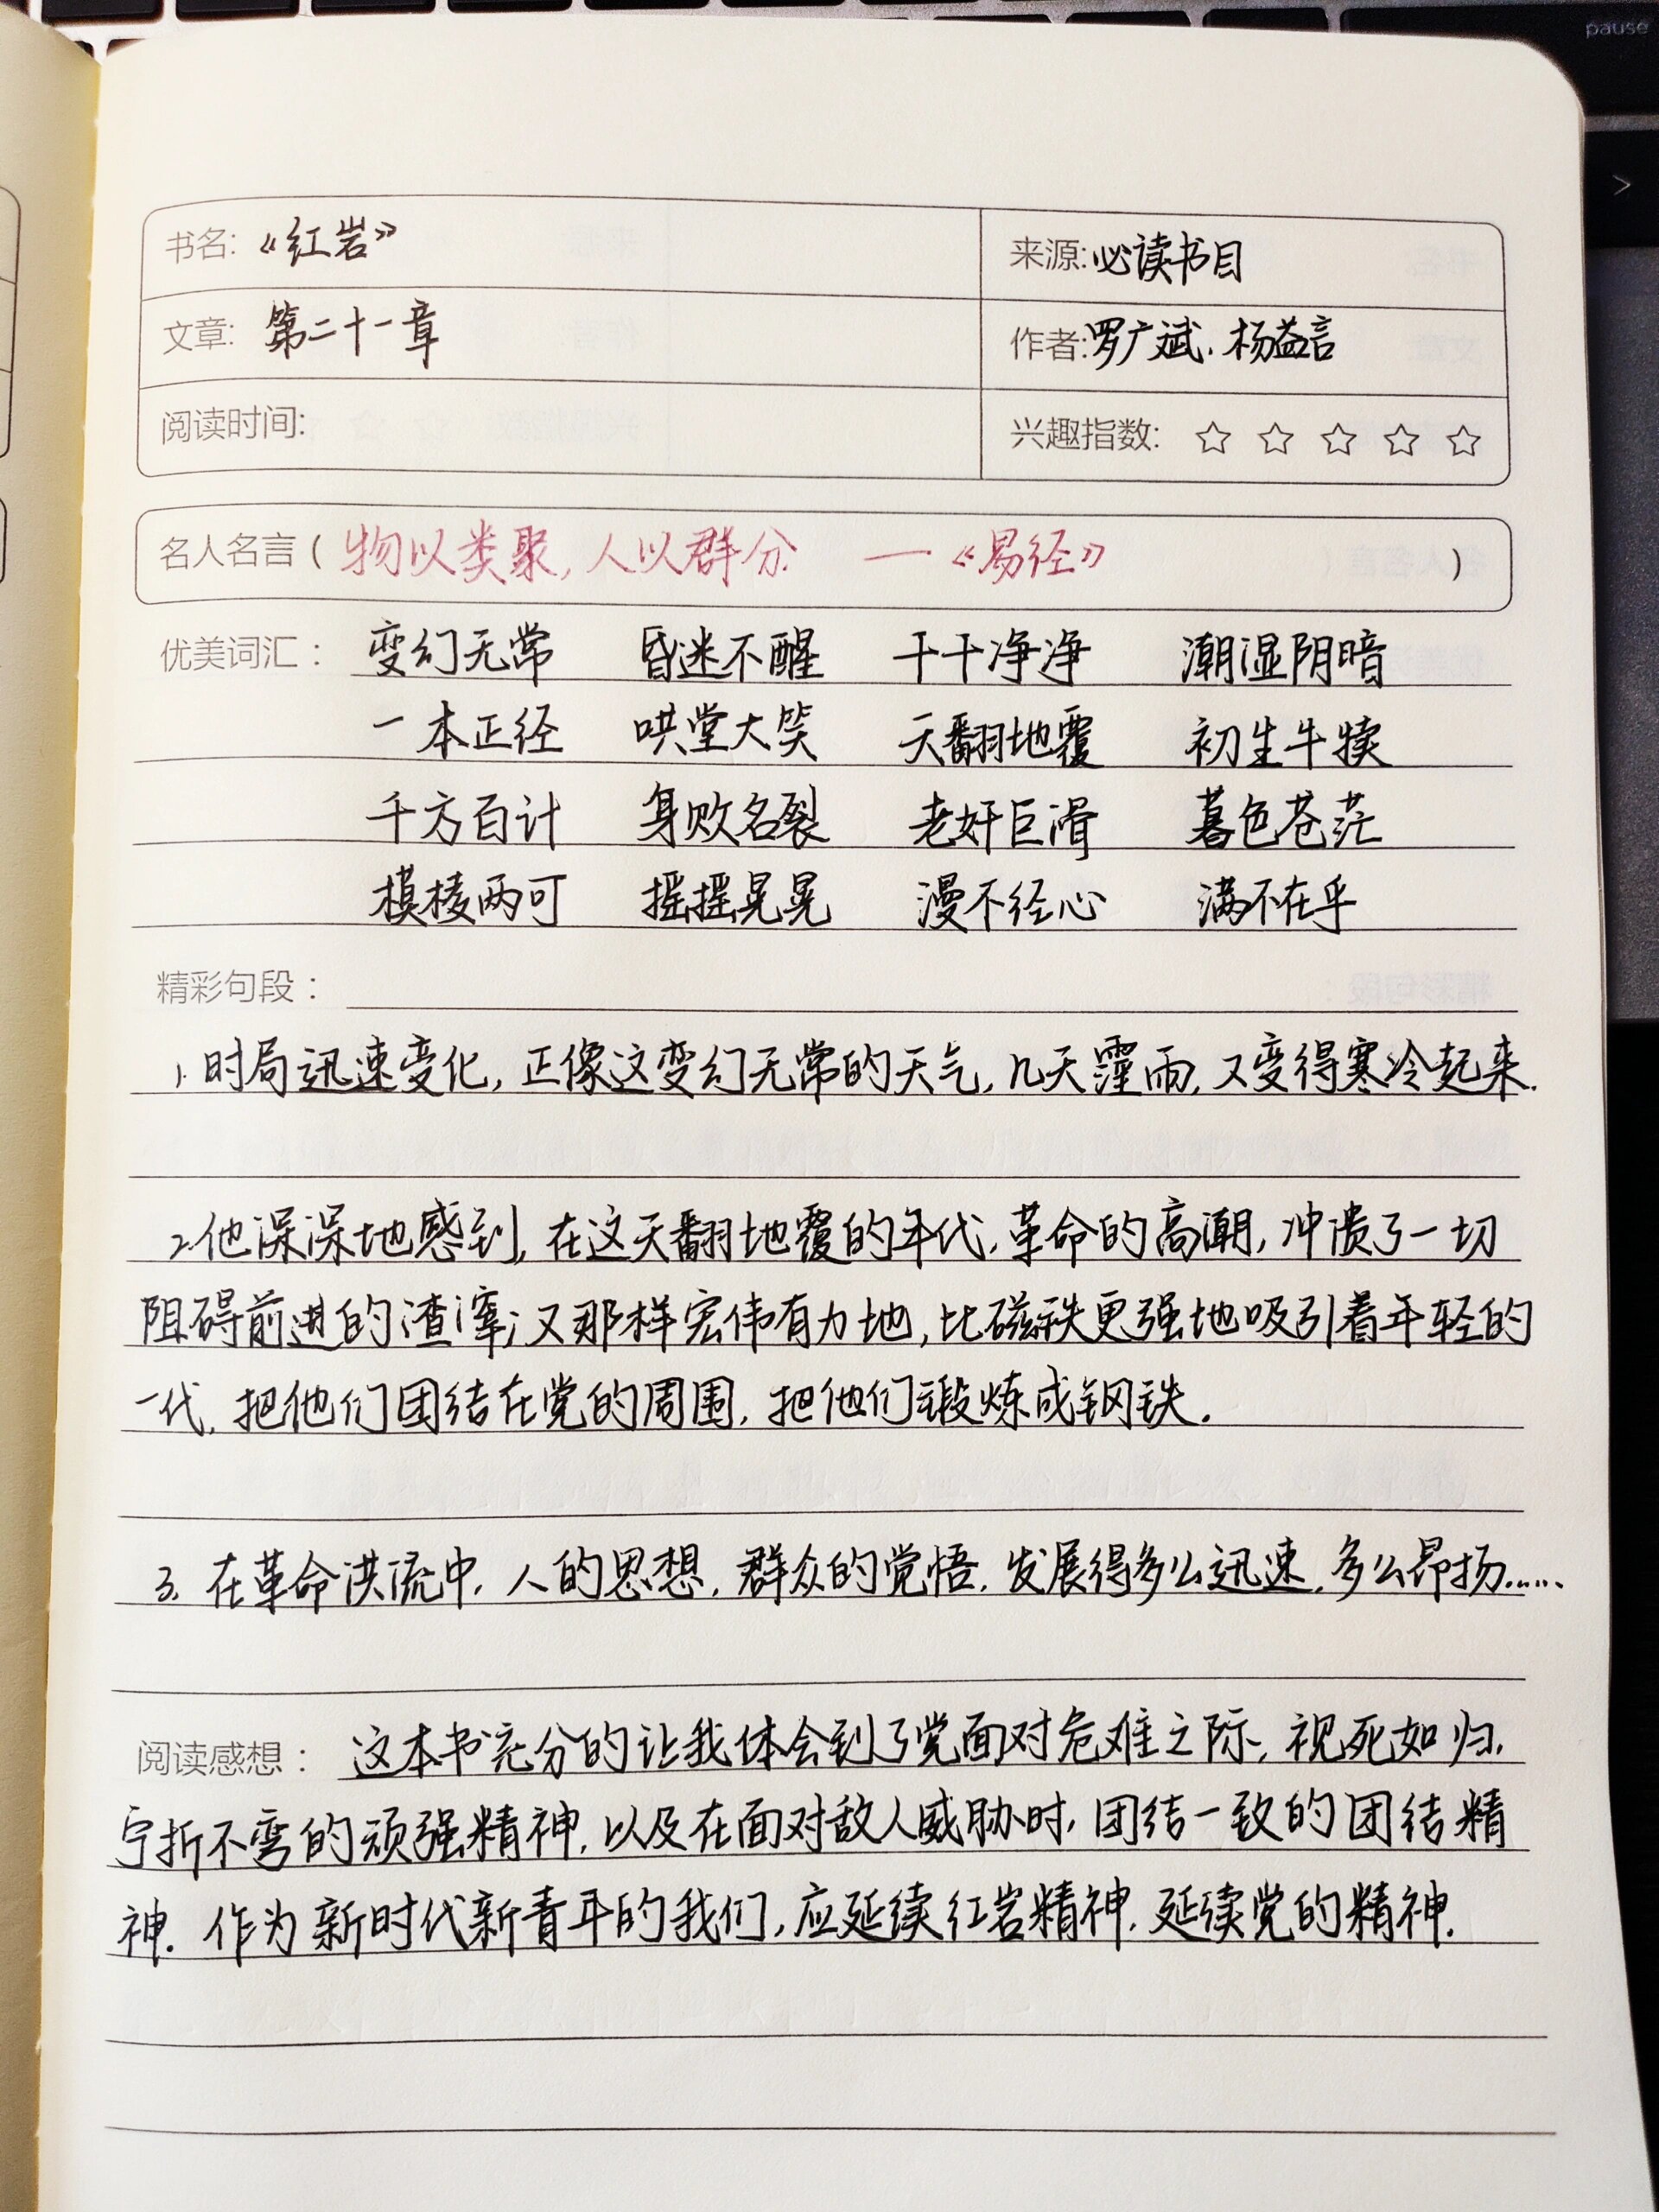 pause
>
书名: 《红岩》
来源: 必读书目
文章: 第二十一章
作者: 罗广斌、杨益言
阅读时间:
兴趣指数: ☆ ☆ ☆ ☆ ☆
名人名言 ( 物以类聚, 人以群分 — 《易经》 )
优美词汇: 变幻无常 昏迷不醒 干干净净 潮湿阴暗
一本正经 哄堂大笑 天翻地覆 初生牛犊
千方百计 身败名裂 老奸巨滑 暮色苍茫
模棱两可 摇摇晃晃 漫不经心 满不在乎
精彩句段:
1. 时局迅速变化, 正像这变幻无常的天气, 几天霪雨, 又变得寒冷起来.
2. 他深深地感到, 在这天翻地覆的年代, 革命的高潮, 冲溃了一切
阻碍前进的渣滓; 又那样宏伟有力地, 比磁铁更强地吸引着年轻的
一代, 把他们团结在党的周围, 把他们锻炼成钢铁.
3. 在革命洪流中, 人的思想, 群众的觉悟, 发展得多么迅速, 多么昂扬......
阅读感想: 这本书充分的让我体会到了党面对危难之际, 视死如归,
宁折不弯的顽强精神, 以及在面对敌人威胁时, 团结一致的团结精
神. 作为新时代新青年的我们, 应延续红岩精神, 延续党的精神.